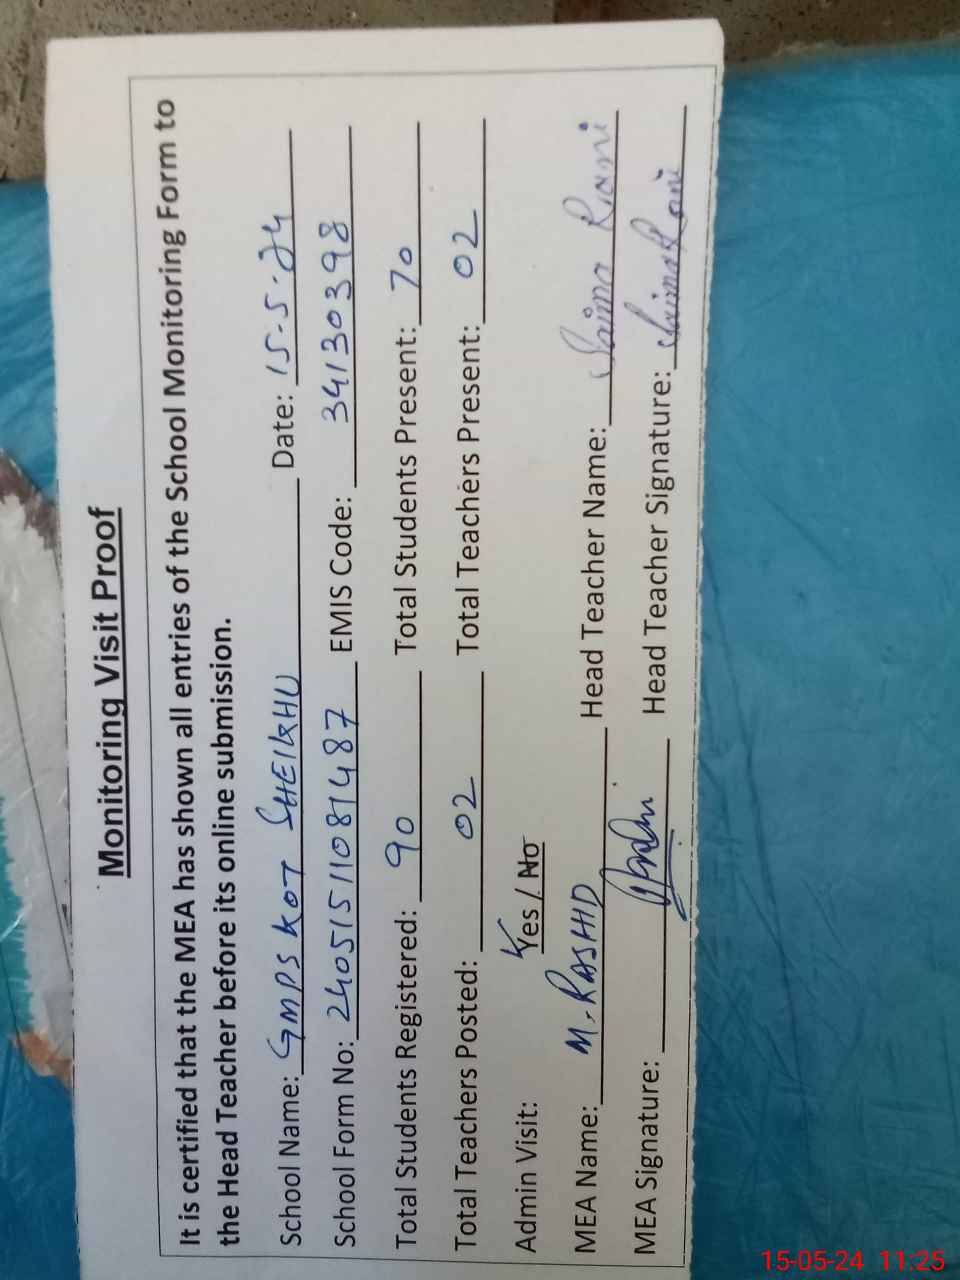 Monitoring Visit Proof
It is certified that the MEA has shown all entries of the School Monitoring Form to
the Head Teacher before its online submission.
School Name: GMPS KOT SHEIKHU Date: 15-5-24
School Form No: 24051511081487 EMIS Code: 34130398
Total Students Registered: 90 Total Students Present: 70
Total Teachers Posted: 02 Total Teachers Present: 02
Admin Visit: Yes / No
MEA Name: M. RASHID Head Teacher Name: Saima Rani
MEA Signature: Head Teacher Signature: Saima Rani
15-05-24 11:25